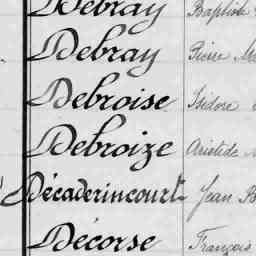 Debray Baptiste
Debray Pierre
Debroise Isidore
Debroize Aristide
Décaderincourt Jean
Décorse François